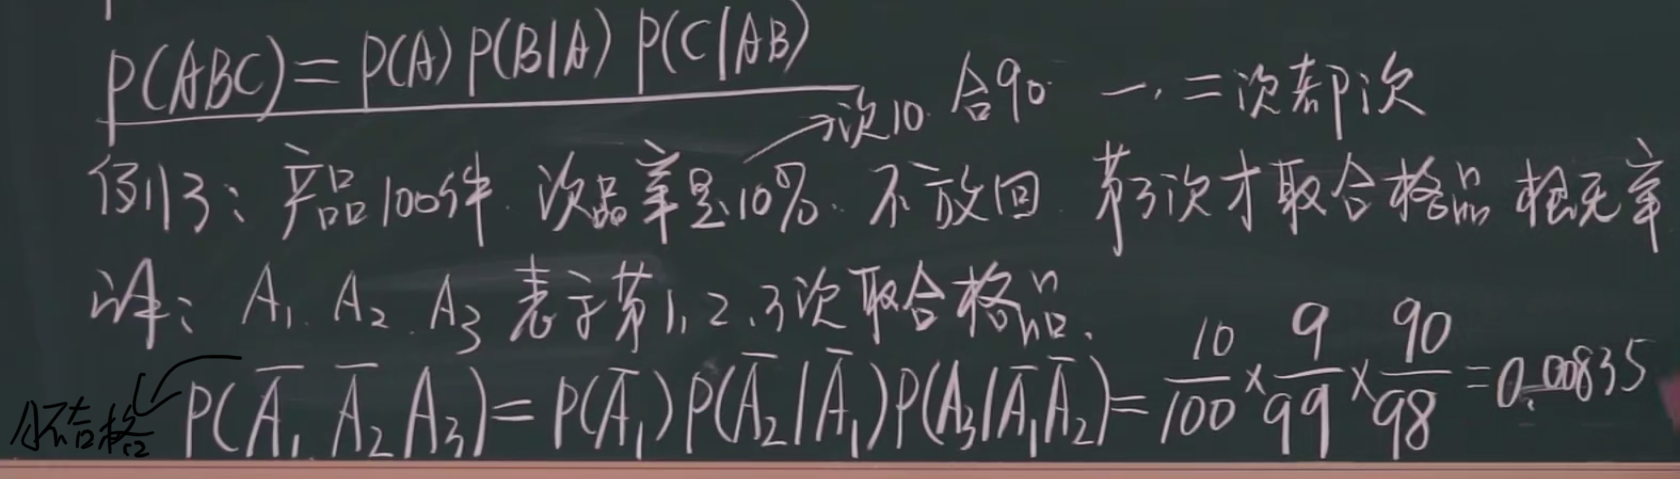 P(ABC)=P(A)P(B|A)P(C|AB)
次10 合90 一,二次都次
例13:产品100件.次品率是10%.不放回 第3次才取合格品 概率
解:A₁.A₂.A₃表示第1,2,3次取合格品.
P(A̅₁A̅₂A₃)=P(A̅₁)P(A̅₂|A̅₁)P(A₃|A̅₁A̅₂)=10/100×9/99×90/98=0.00835
不合格